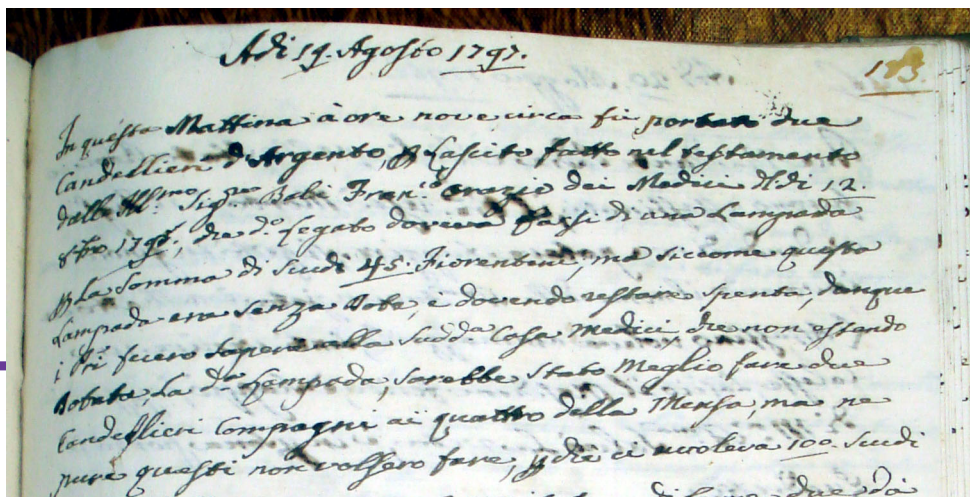 Adi 19. Agosto 1797.
183
In questa Mattina à ore nove circa fù portato due
Candellieri d'Argento, p Lascito fatto nel testamento
dall Ill.mo Sig.re Bali Fran.co Orazio dei Medici di 12.
8bre 1795, che d.o legato doveva farsi di una Lampada
p La Somma di Scudi 45. Fiorentini, ma siccome questa
Lampada era senza Dote, e dovendo restare spenta, dunque
i fecero sapere alla Sudd.a Casa Medici, che non essendo
Dotata La d.a Lampada, sarebbe stato Meglio fare due
Candeglieri Compagni ai quattro della Mensa, ma ne
pure questi non volsero fare, p che ci nvoleva 100. Scudi
di due